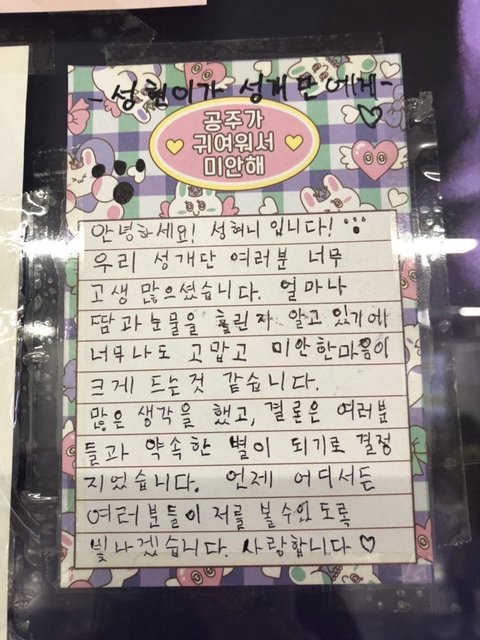 - 성훤이가 성개단에게 -
공주가
귀여워서
미안해
안녕하세요! 성훠니 입니다!
우리 성개단 여러분 너무
고생 많으셨습니다. 얼마나
땀과 눈물을 흘린지 알고 있기에
너무나도 고맙고 미안한마음이
크게 드는것 같습니다.
많은 생각을 했고, 결론은 여러분
들과 약속한 별이 되기로 결정
지었습니다. 언제 어디서든
여러분들이 저를 볼수있도록
빛나겠습니다. 사랑합니다♡